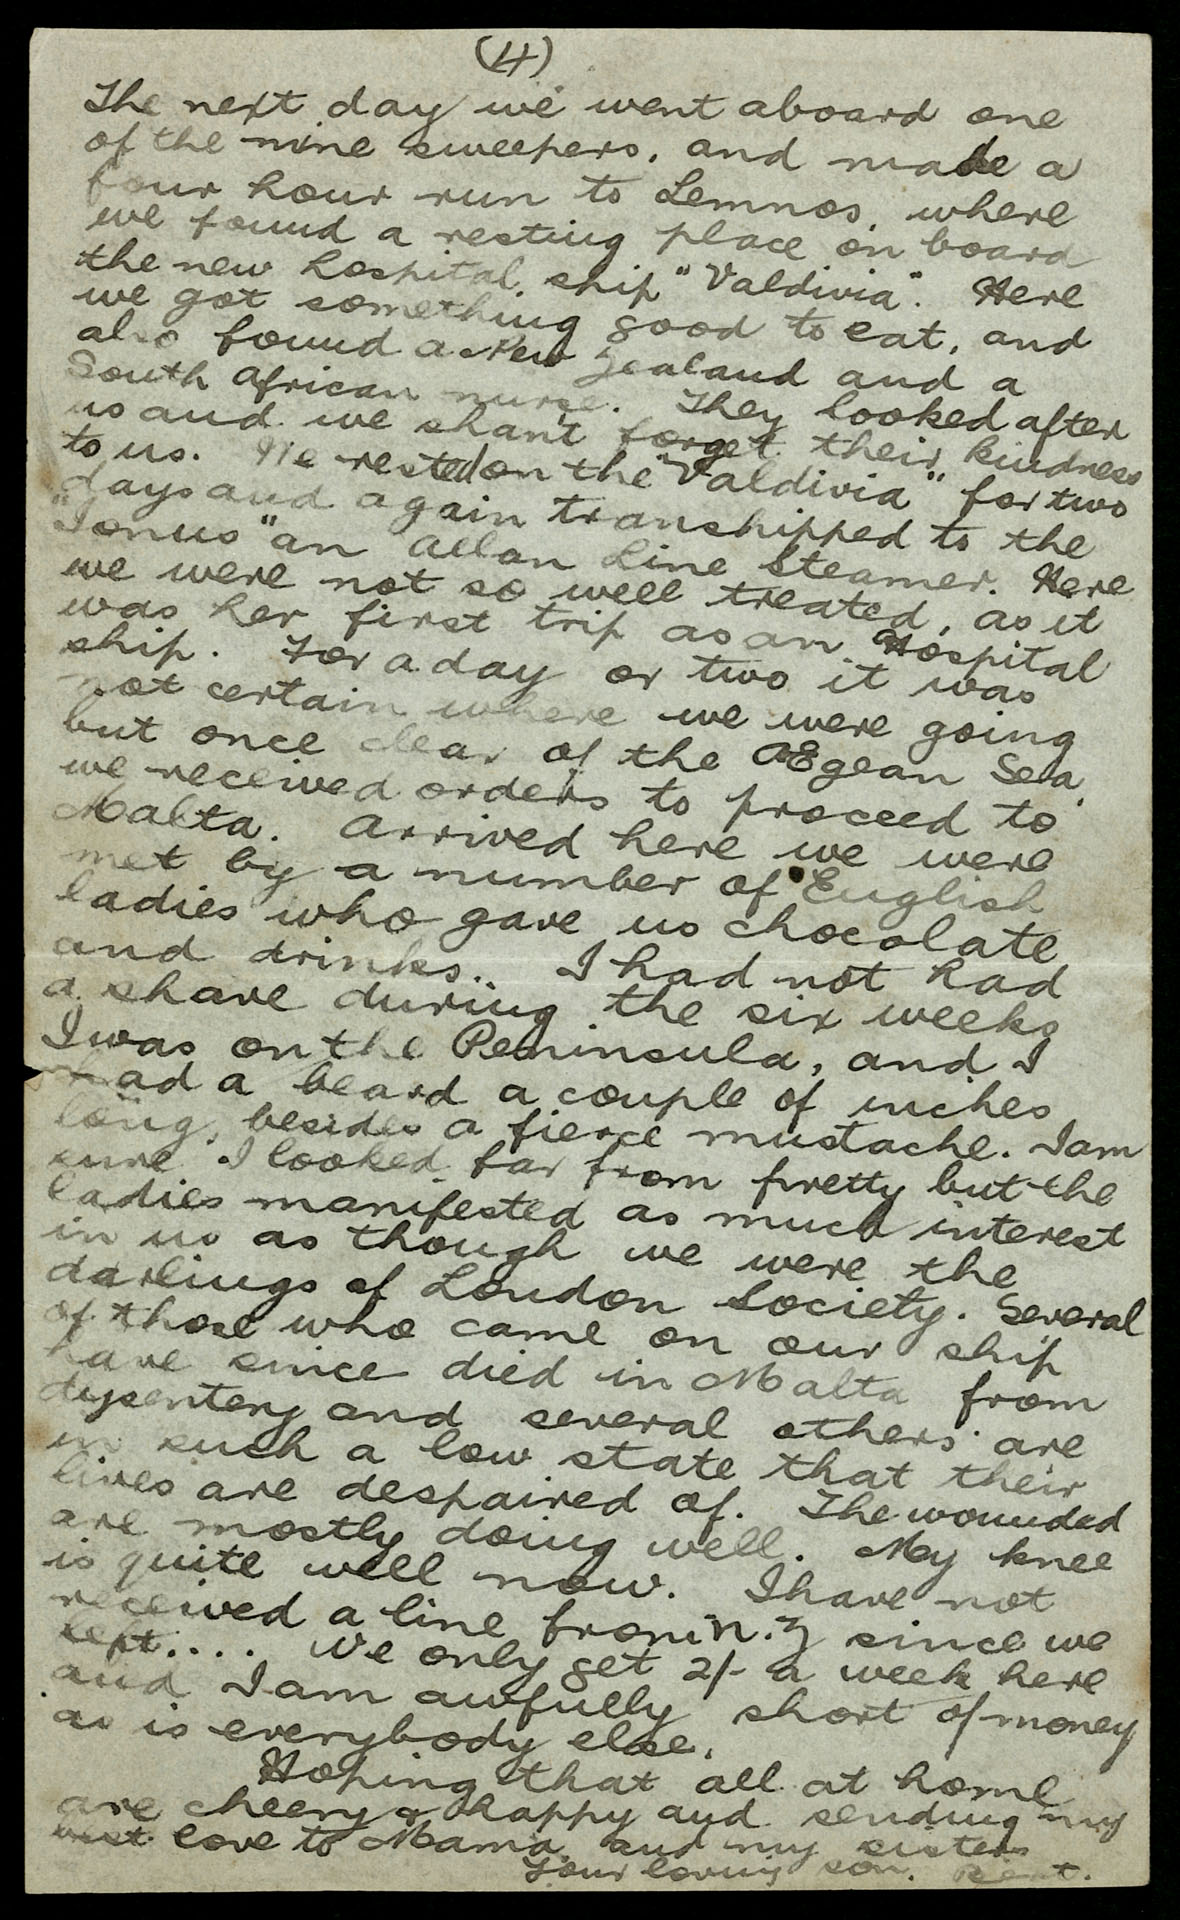 (4)
The next day we went aboard one
of the mine sweepers, and made a
four hour run to Lemnos, where
we found a resting place on board
the new hospital ship "Valdivia". Here
we got something good to eat, and
also found a New Zealand and a
South African nurse. They looked after
us and we shant forget their kindness
to us. We rested on the "Valdivia" for two
days and again transhipped to the
"Ionus" an Allan Line Steamer. Here
we were not so well treated, as it
was her first trip as an Hospital
ship. For a day or two it was
not certain where we were going
but once clear of the AEgean Sea,
we received orders to proceed to
Malta. Arrived here we were
met by a number of English
ladies who gave us chocolate
and drinks. I had not had
a shave during the six weeks
I was on the Peninsula, and I
had a beard a couple of inches
long, besides a fierce mustache. I am
sure I looked far from pretty but the
ladies manifested as much interest
in us as though we were the
darlings of London Society. Several
of those who came on our ship
have since died in Malta from
dysentery and several others are
in such a low state that their
lives are despaired of. The wounded
are mostly doing well. My knee
is quite well now. I have not
received a line from N.Z since we
left.... We only get 2/- a week here
and I am awfully short of money
as is everybody else.
Hoping that all at home
are cheery & happy and sending my
best love to Mama and my sisters
Your loving son.